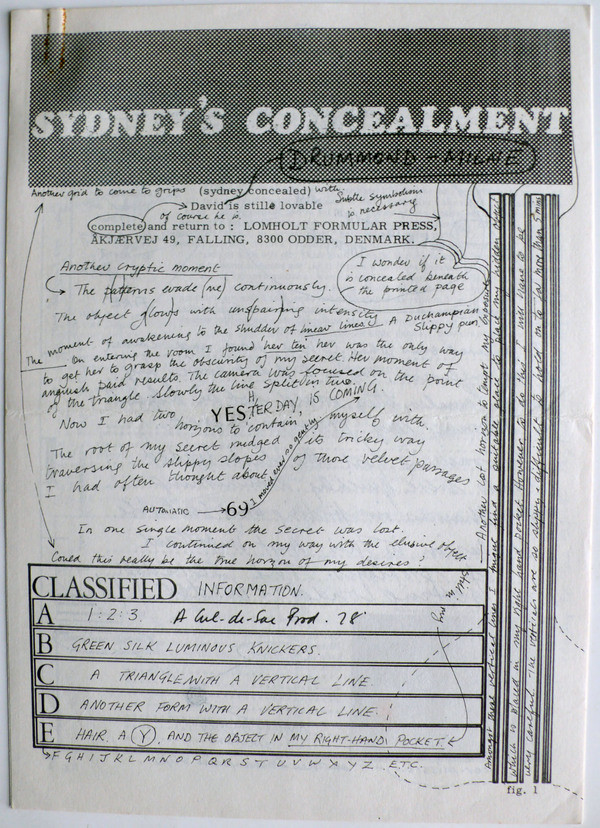 SYDNEY'S CONCEALMENT
DRUMMOND - MILNE
Another grid to come to grips (sydney concealed) with.
David is stille lovable
of course he is.
Subtle symbolism
is necessary
complete and return to : LOMHOLT FORMULAR PRESS,
AKJÆRVEJ 49, FALLING, 8300 ODDER, DENMARK.
Another cryptic moment
I wonder if it
is concealed beneath
the printed page
The patterns evade (me) continuously.
The object glows with unspairing intensity
A Duchampian
slippy pun,
The moment of awakening to the shudder of linear lines.
On entering the room I found 'her ten' her was the only way
to get her to grasp the obscurity of my secret. Her moment of
anguish paid results. The camera was focused on the point
of the triangle. Slowly the line split in two.
H
YESTERDAY, IS COMING.
Now I had two horizons to contain, myself with.
The root of my secret nudged its tricky way
traversing the slippy slopes of those velvet passages
I had often thought about.
I moved ever so gently
AUTOMATIC → 69
In one single moment the secret was lost.
I continued on my way with the elusive object
Could this really be the true horizon of my desires?
Another lost horizon to tempt my exposure.
Amongst these vertical lines I might find a suitable place to place my hidden object
which is placed in my right hand pocket. However to do this I will have to be
very careful. The verticals are so slippy + difficult to hold on to for more than 5 mins
CLASSIFIED INFORMATION.
A 1:2:3. A Cul-de-Sac Prod. 78'
B GREEN SILK LUMINOUS KNICKERS.
C A TRIANGLE WITH A VERTICAL LINE
D ANOTHER FORM WITH A VERTICAL LINE.
E HAIR, A Y, AND THE OBJECT IN MY RIGHT-HAND POCKET.
F G H I J K L M N O P Q R S T U V W X Y Z . ETC.
fig. 1